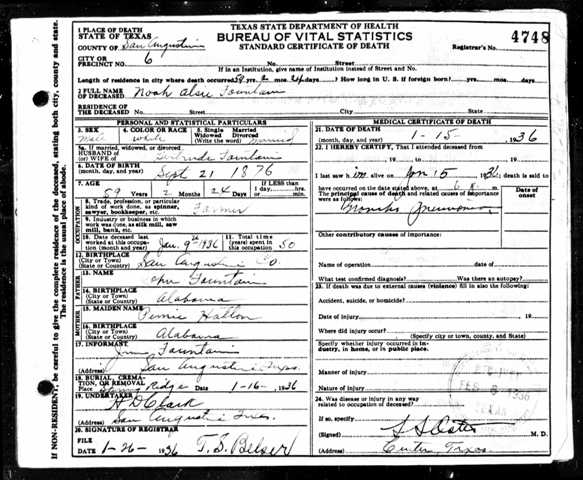 TEXAS STATE DEPARTMENT OF HEALTH
BUREAU OF VITAL STATISTICS
STANDARD CERTIFICATE OF DEATH
4748
Registrar's No.
1 PLACE OF DEATH
STATE OF TEXAS
COUNTY OF San Augustine
CITY OR
PRECINCT NO. 6 No. Street
If in an Institution, give name of Institution instead of Street and No.
Length of residence in city where death occurred 59 yrs. 2 mos. 24 days. How long in U. S. if foreign born? yrs. mos. days
2 FULL NAME
OF DECEASED Noah Fountain
RESIDENCE OF
THE DECEASED No. Street City State
If NON-RESIDENT, be careful to give the complete residence of the deceased, stating both city, county and state.
The residence is the usual place of abode.
PERSONAL AND STATISTICAL PARTICULARS
3. SEX Male
4. COLOR OR RACE white
5. Single Married Widowed Divorced (Write the word) married
5a. If married, widowed, or divorced
HUSBAND OF
(or) WIFE OF Gertrude Fountain
6. DATE OF BIRTH
(month, day, and year) Sept 21 1876
7. AGE 59 Years 2 Months 24 Days
If LESS than
1 day, hrs.
or min.
OCCUPATION
8. Trade, profession, or particular
kind of work done, as spinner,
sawyer, bookkeeper, etc. Farmer
9. Industry or business in which
work was done, as silk mill, saw
mill, bank, etc.
10. Date deceased last
worked at this occupation
(month and year) Jan. 9th 1936
11. Total time
(years) spent in
this occupation 50
12. BIRTHPLACE
(City or Town)
(State or Country) San Augustine Co.
FATHER
13. NAME John Fountain
14. BIRTHPLACE
(City or Town)
(State or Country) Alabama
MOTHER
15. MAIDEN NAME
16. BIRTHPLACE
(City or Town)
(State or Country) Alabama
17. INFORMANT Jim Fountain
(Address) San Augustine Texas
18. BURIAL, CREMATION, OR REMOVAL
Place Ridge Date 1-16- 1936
19. UNDERTAKER H D Clark
(Address) San Augustine Texas
20. SIGNATURE OF REGISTRAR
FILE
DATE 1-26- 1936 T. S. Belser
MEDICAL CERTIFICATE OF DEATH
21. DATE OF DEATH
(month, day, and year) 1-15- 1936
22. I HEREBY CERTIFY, That I attended deceased from
19 to 19
I last saw him alive on Jan 15 1936, death is said to
have occurred on the date stated above, at m.
The principal cause of death and related causes of importance
were as follows:
Date of
onset
Pneumonia
Other contributory causes of importance:
Name of operation date of
What test confirmed diagnosis? Was there an autopsy?
23. If death was due to external causes (violence) fill in also the following:
Accident, suicide, or homicide?
Date of injury 19
Where did injury occur?
(Specify city or town, county, and State)
Specify whether injury occurred in industry, in home, or in public place.
Manner of injury
Nature of injury
FEB 1936
TEXAS
24. Was disease or injury in any way
related to occupation of deceased?
If so, specify
(Signed) M. D.
(Address) Center, Texas